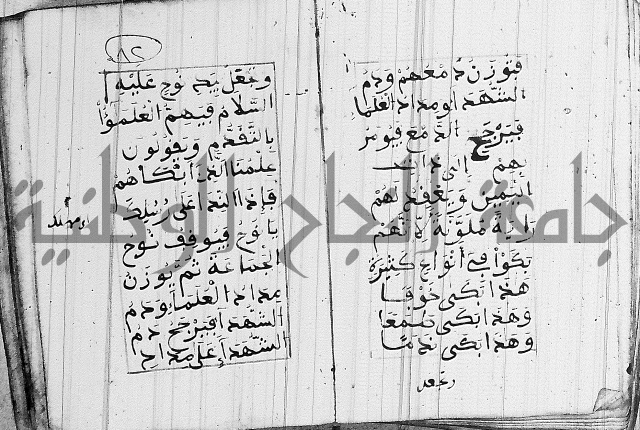 فيوزن دمعهم ودم
الشهداء ومداد العلماء
فيرجح الدمع فيومر
بهم إلى ذات
اليمين ويعقد لهم
راية ملونة لأنهم
بكوا في أنواع كثيرة
هذا بكى خوفا
وهذا بكى طمعا
وهذا بكى ندما
وتجعل
٨٢
وتجعل بيد نوح عليه
السلام فيهم العلماء
بالتقدم ويقولون
علمنا الذي أبكاهم
فإذا النداء على رسلك
يا نوح فيوقف نوح
الجماعة ثم يوزن
مداد العلماء ودم
الشهداء فيرجح دم
الشهداء على مداد
جامعة النجاح الوطنية